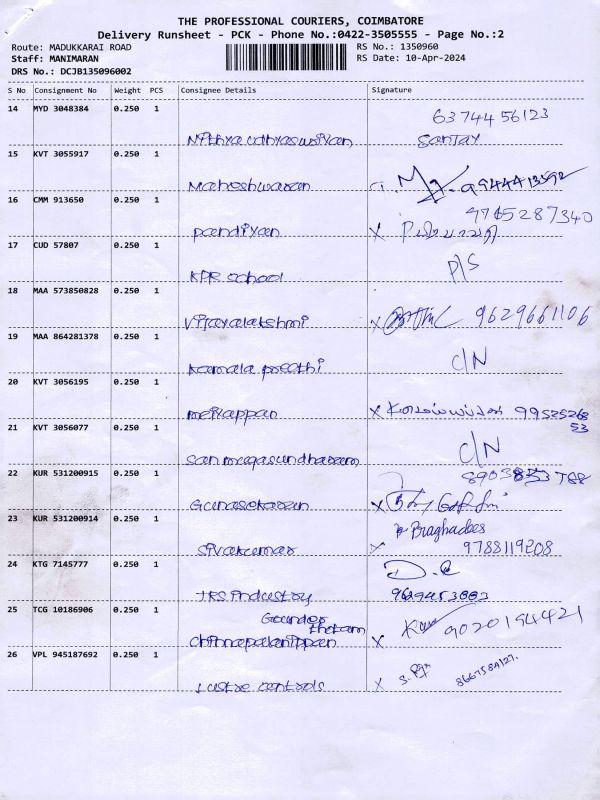 THE PROFESSIONAL COURIERS, COIMBATORE
Delivery Runsheet - PCK - Phone No.:0422-3505555 - Page No.:2
Route: MADUKKARAI ROAD
Staff: MANIMARAN
DRS No.: DCJB135096002
RS No.: 1350960
RS Date: 10-Apr-2024
S No Consignment No Weight PCS Consignee Details Signature
14 MYD 3048384 0.250 1
6374456123
Sanjay
15 KVT 3055917 0.250 1
Maheshwaran
9944413592
16 CMM 913650 0.250 1
9765287340
Pandiyan X
17 CUD 57807 0.250 1
KPR School P/S
18 MAA 573850828 0.250 1
Vijayalakshmi X 9629661106
19 MAA 864281378 0.250 1
Kamala preethi C/N
20 KVT 3056195 0.250 1
Meiyappan X 9952526853
21 KVT 3056077 0.250 1
Sanmugasundharam C/N
22 KUR 531200915 0.250 1
Gunasekaran X
23 KUR 531200914 0.250 1
Sivakumar X 9788119208
24 KTG 7145777 0.250 1
TRS Industry
25 TCG 10186906 0.250 1
Gounder thottam
Chinnapalaniappan X 9020154421
26 VPL 945187692 0.250 1
Lustre controls X 8667584127.